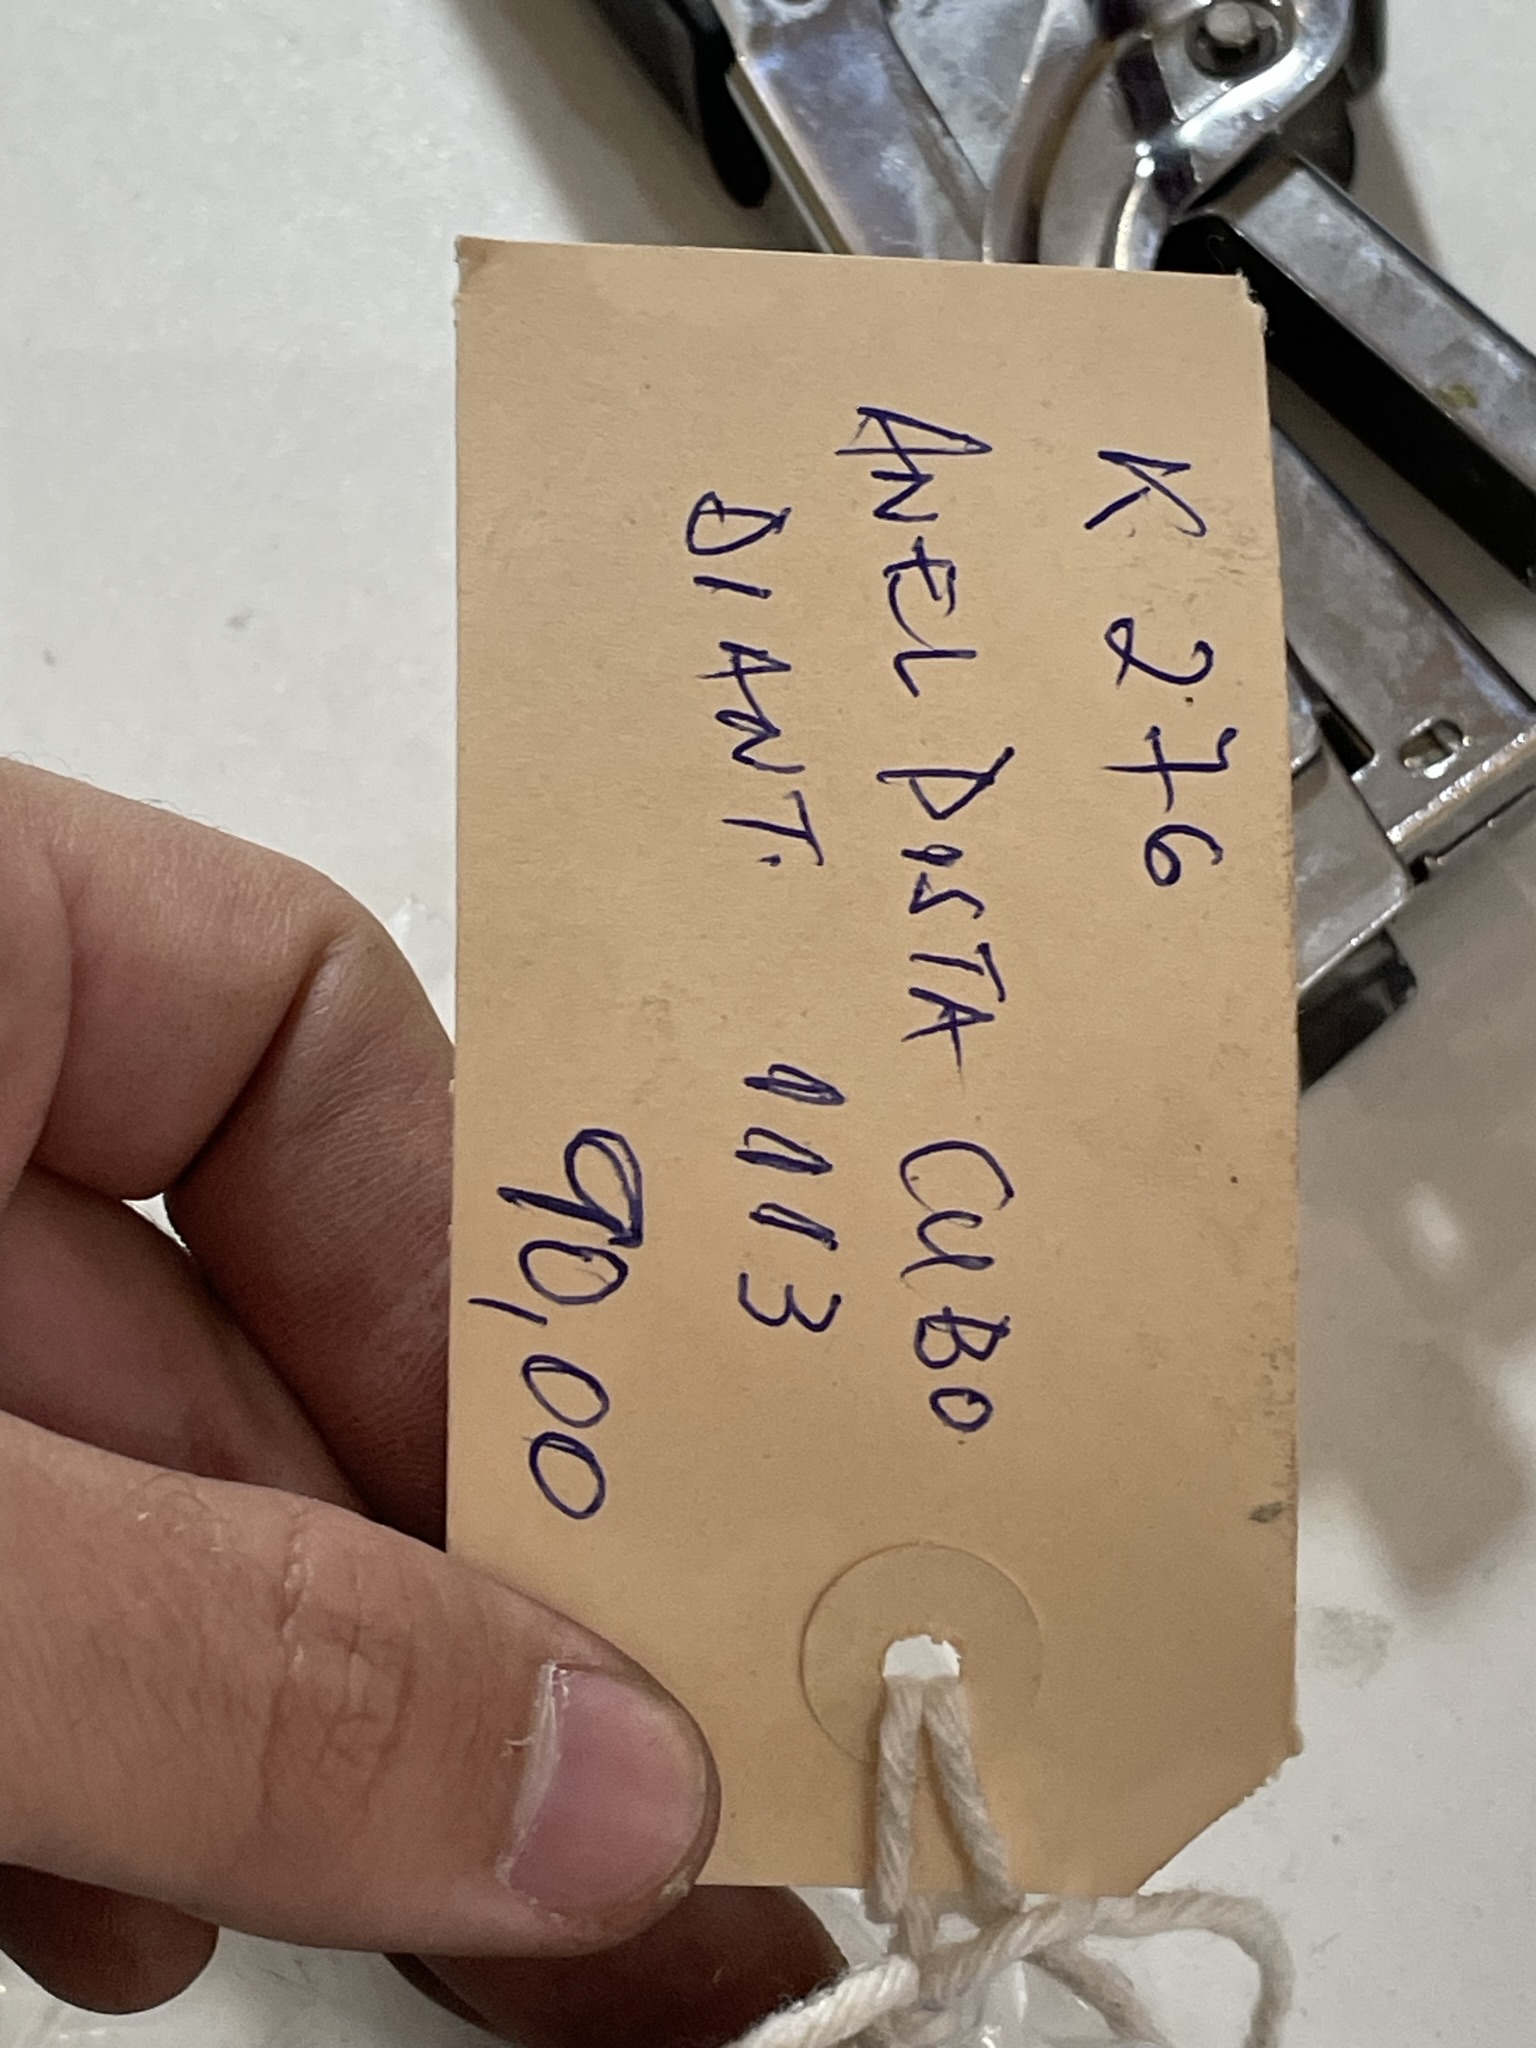 K 276
ANEL PISTA CUBO
DIANT. 1113
90,00